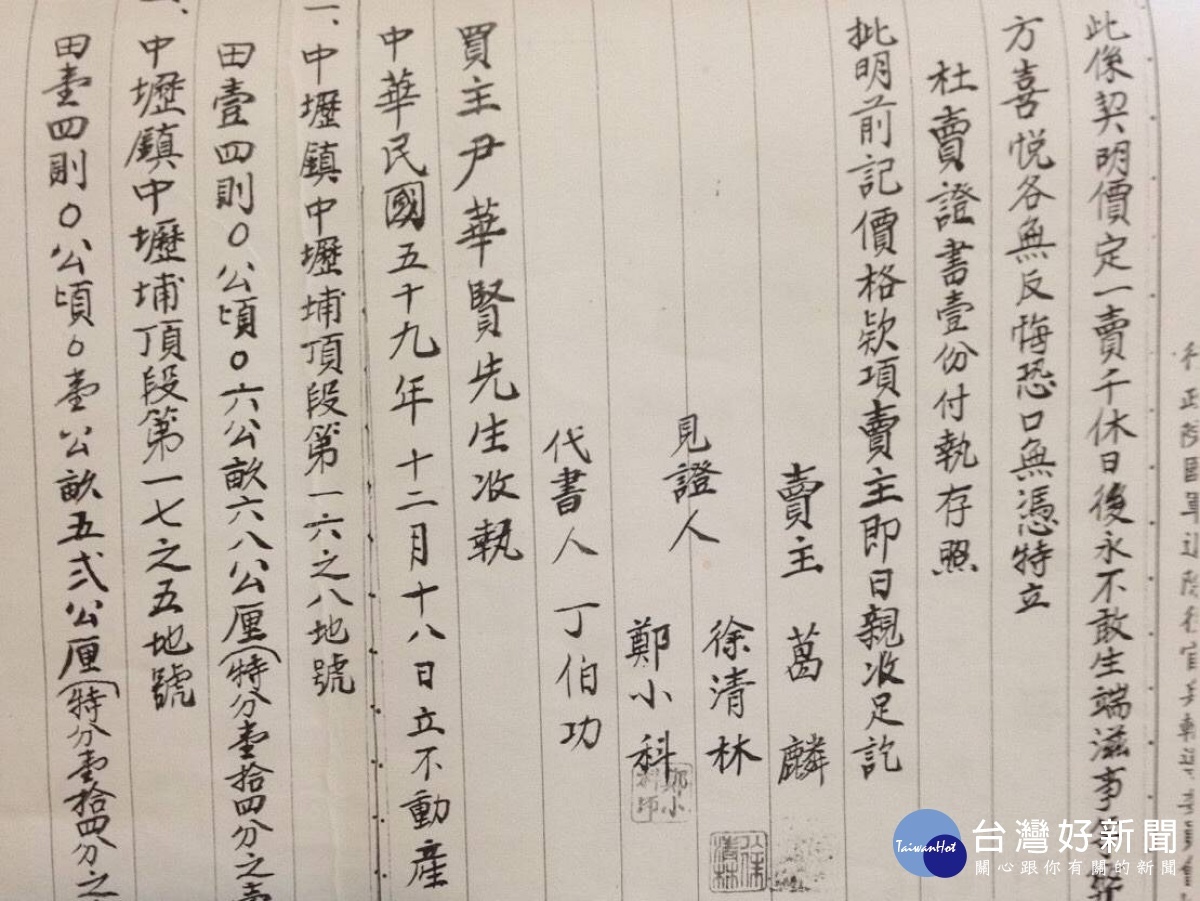 行政院國軍退除役官兵輔導委員會
此係契明價定一賣千休日後永不敢生端滋事
方喜悅各無反悔恐口無憑特立
杜賣證書壹份付執存照
批明前記價格欵項賣主即日親收足訖
賣主 葛麟
見證人 徐清林
鄭小科
代書人 丁伯功
買主尹華賢先生收執
中華民國五十九年十二月十八日立不動產
一、中壢鎮中壢埔頂段第一六之八地號
田壹四則0公頃0六公畝六八公厘(特分壹拾四分之壹
中壢鎮中壢埔頂段第一七之五地號
田壹四則0公頃0壹公畝五弍公厘(特分壹拾四分之
台灣好新聞
TaiwanHot
關心跟你有關的新聞